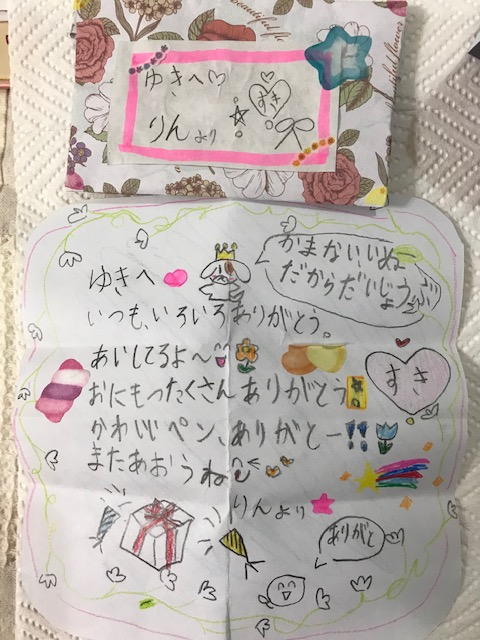 ゆきへ♡
すき
りんより
かまない、いぬー
だからだいじょうぶ
ゆきへ
いつも、いろいろありがとう。
あいしてるよ〜
すき
おにもつたくさんありがとう
かわいいペン、ありがとー!!
またあおうね
りんより
ありがと